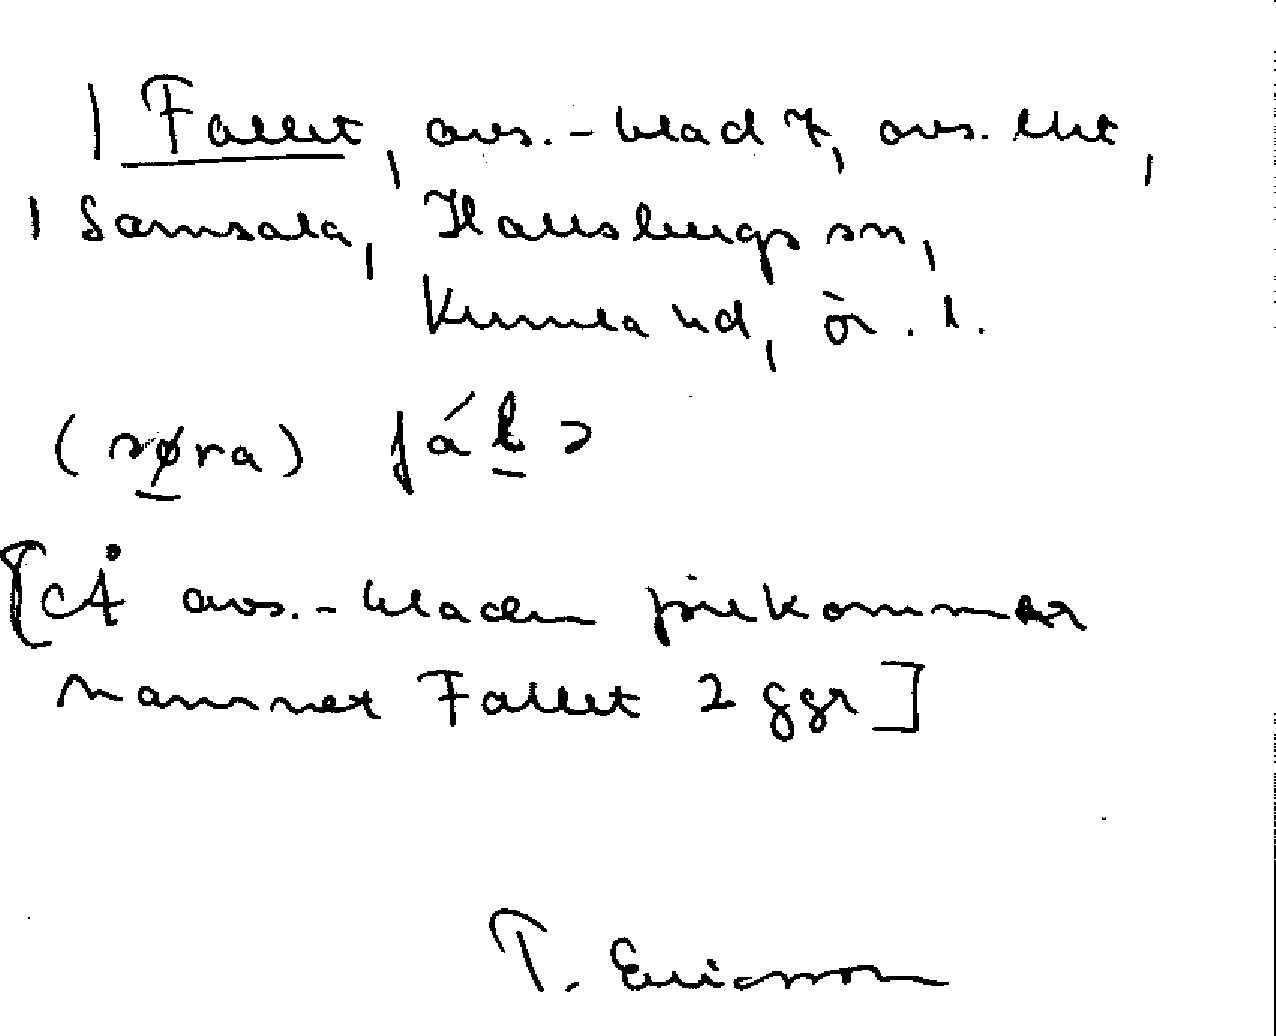 Fallet, avs.-blad 7, avs. lht,
Samsala, Hallsbergs sn,
Kumla hd, ör. l.
(søra) fál
[Å avs.-bladen förekommer
namnet Fallet 2 ggr]
T. Ericsson